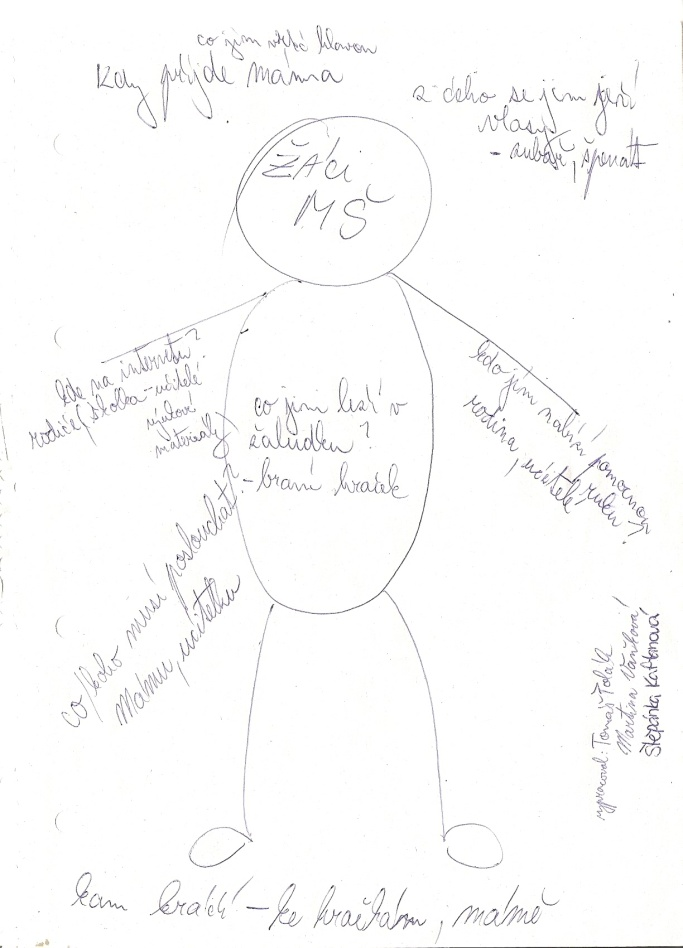 co jim vrtá hlavou
Kdy přijde máma
z čeho se jim ježí
vlasy
- zubař, špenát
ŽÁci
MŠ
kde na internetu?
rodiče (školka - učitelé
výukové
materiály)
co jim leží v
žaludku?
- braní hraček
kdo jim nabízí pomocnou
ruku?
rodina, učitelé
co/koho musí poslouchat?
Mámu, učitelku
vypracoval: Tomáš Polák
Martina Vaňková
Štěpánka Kaftanová
kam kráčí - ke hračkám, mámě